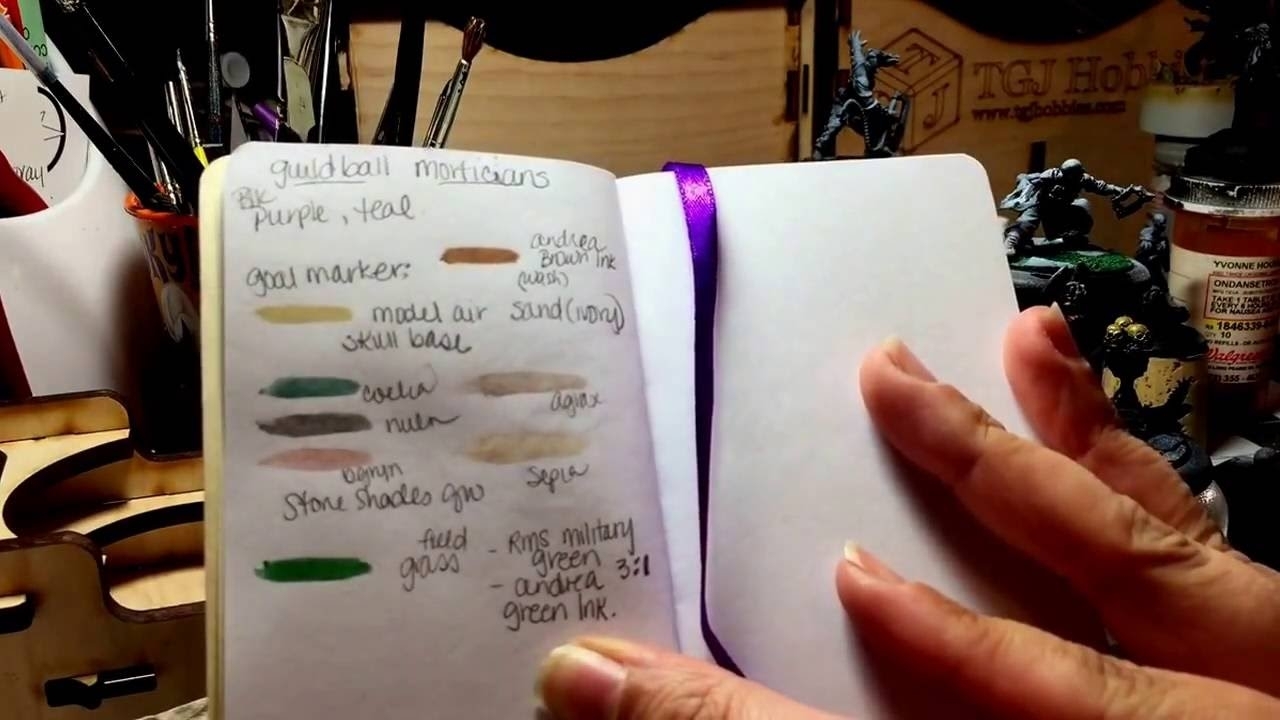 guildball morticians
Blk
purple, teal
andrea
Brown Ink
(wash)
goal marker:
model air sand (ivory)
skull base
coelia
agrax
nuln
sepia
Stone shades gw
field
grass
- Rms military
green 3:1
- andrea
green Ink.
TGJ Hobbies
www.tgjhobbies.com
T
J
YVONNE HOUS
ONDANSETRO
TAKE 1 TABLET
EVERY 6 HOURS
FOR NAUSEA
1846339-
QTY 10
NO REFILLS - DR. A
Walgree
355 - 4